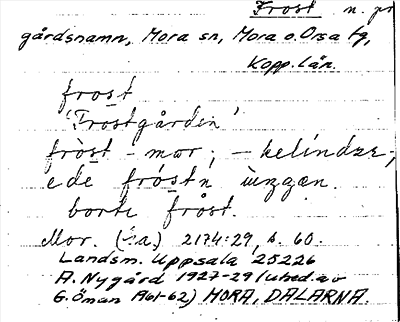 Frost n. pr
gårdsnamn, Mora sn, Mora o. Orsa tg,
Kopp. län.
frost
'Frostgården'
fròst - mær; - kelíndær;
e de fróstn ùngæn.
borte fròst.
Mor. 2174:29, s. 60.
Landsm. Uppsala 25226
A. Nygård 1927-29 (utred. av
G. Öman 1961-62) MORA, DALARNA.